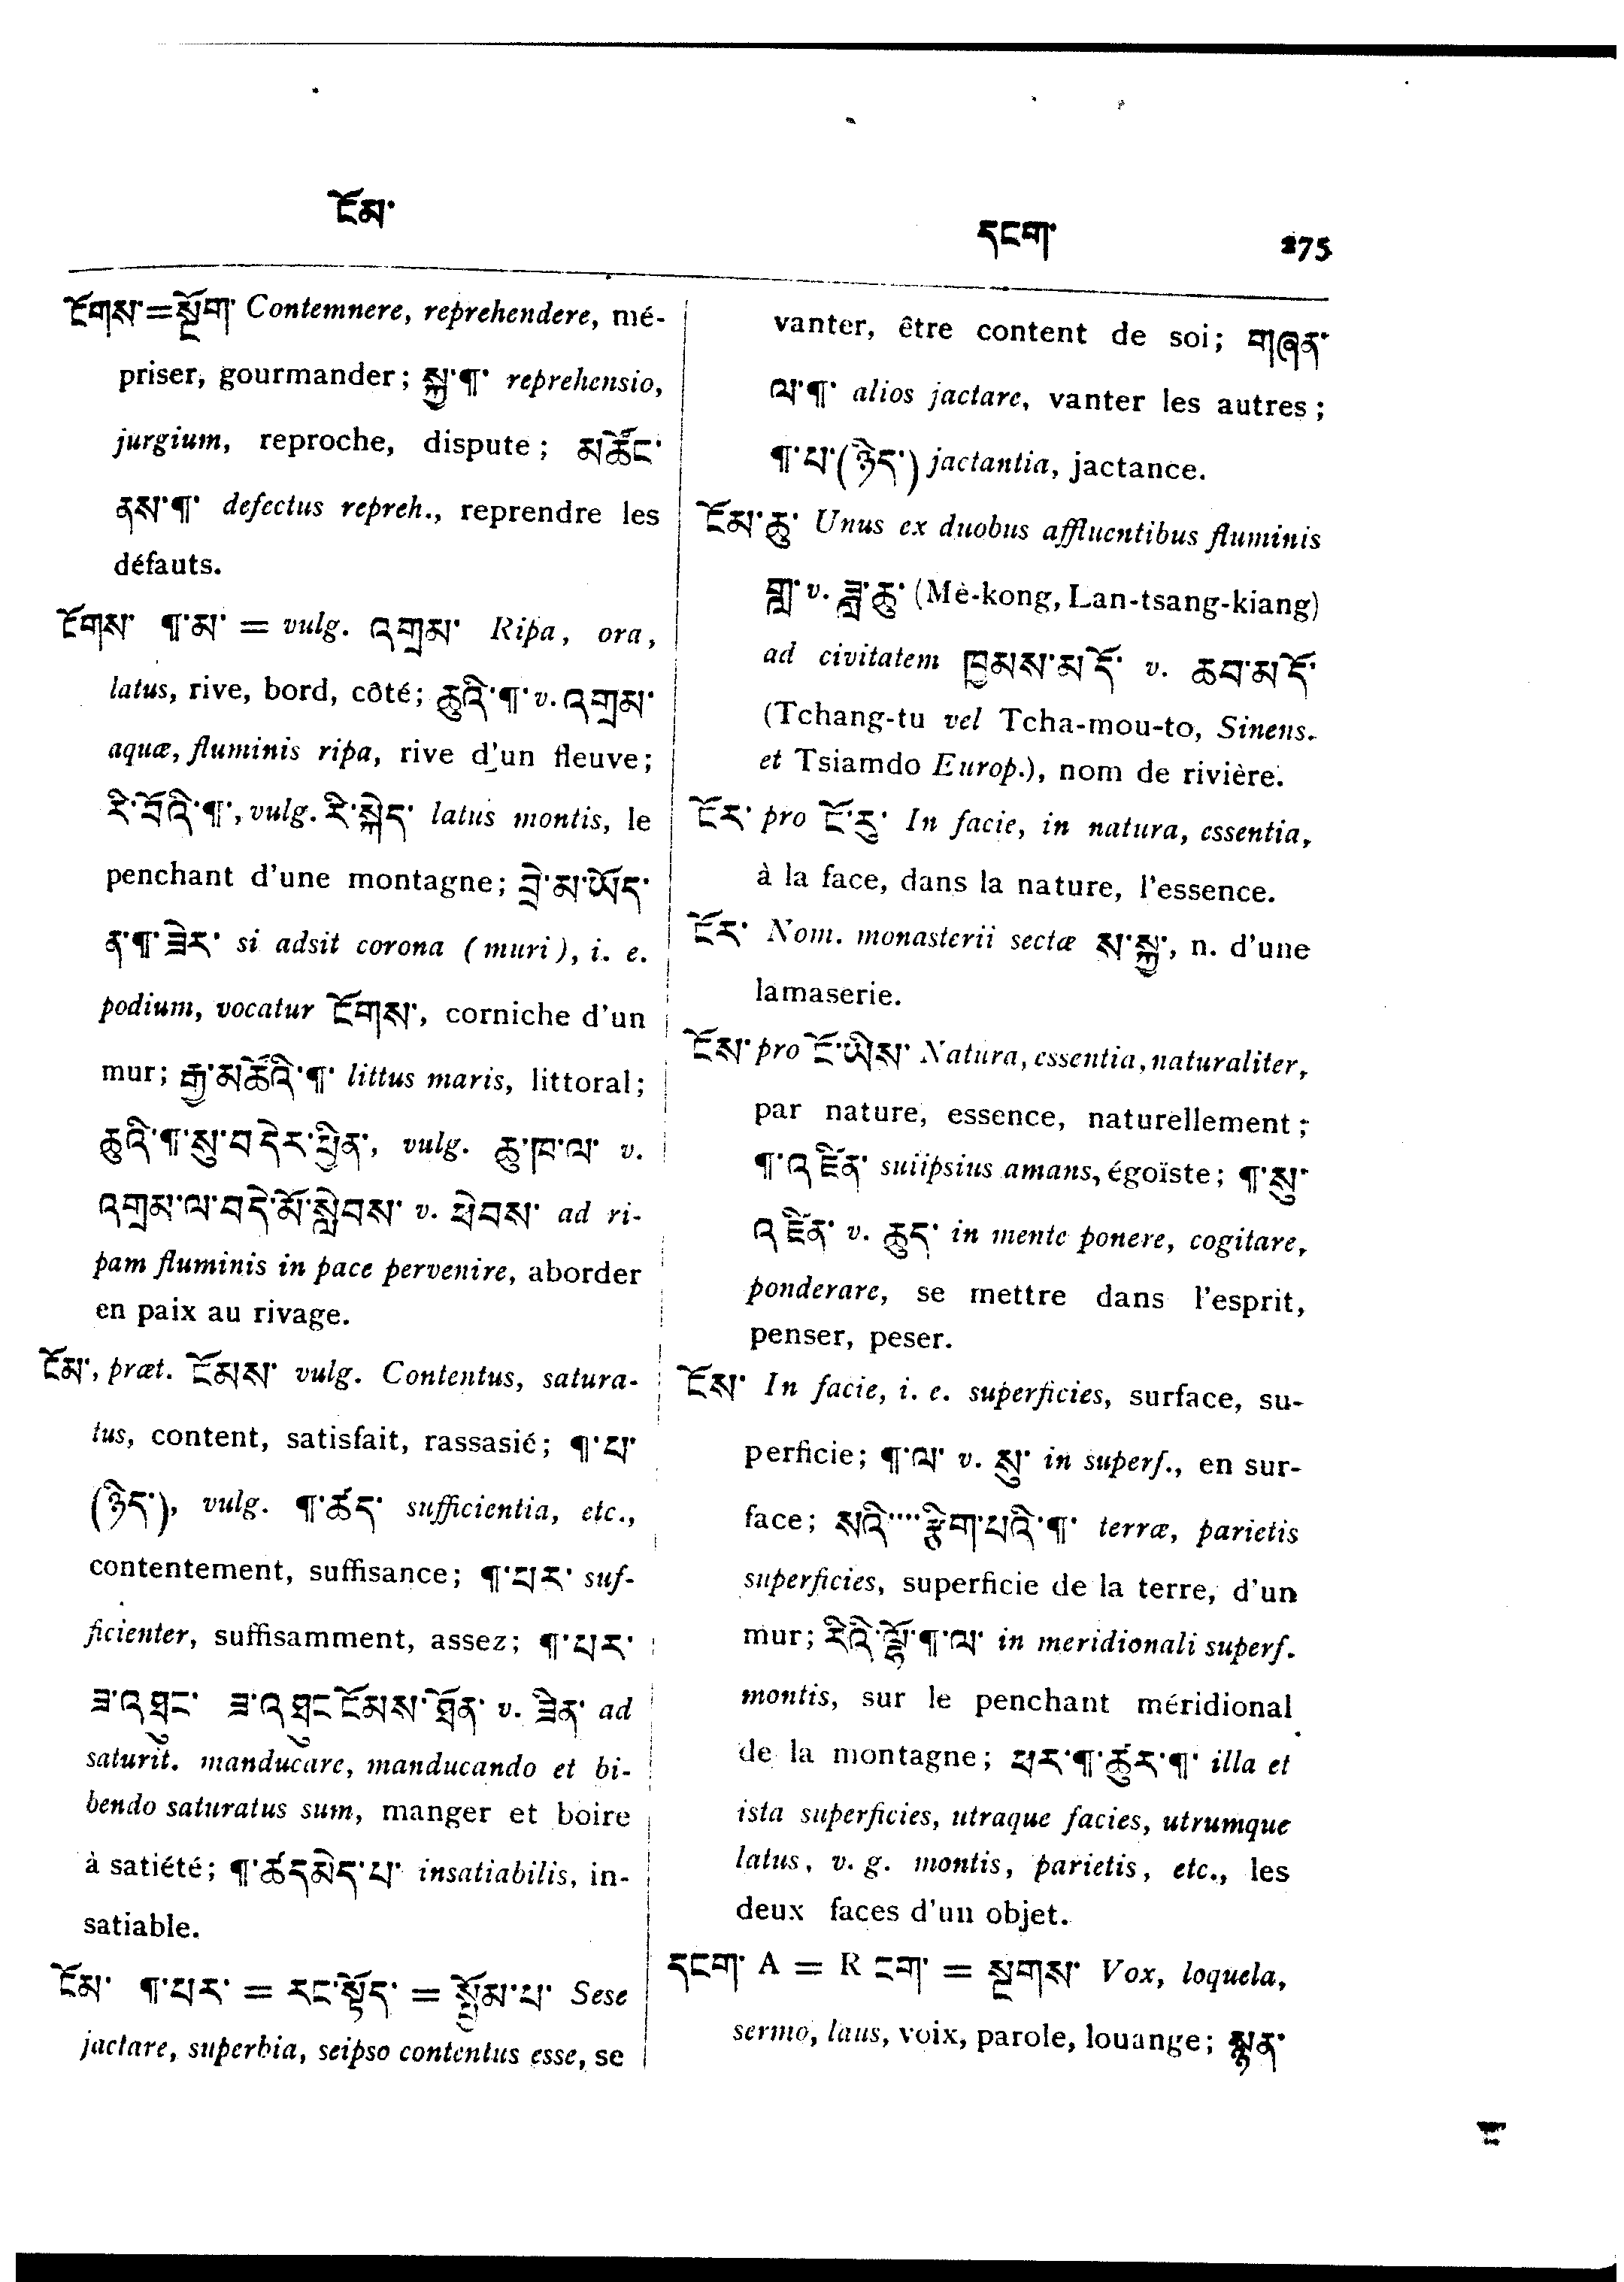 ངོམ་
དངག་ 275
ངོགས་=སྔོག་ Contemnere, reprehendere, mé-
priser, gourmander; སྐྱ་¶་ reprehensio,
jurgium, reproche, dispute; མཚོང་
ནས་¶་ defectus repreh., reprendre les
défauts.
ངོགས་ ¶་མ་ = vulg. འགྲམ་ Ripa, ora,
latus, rive, bord, côté; ཆུའི་¶་ v. འགྲམ་
aquæ, fluminis ripa, rive d'un fleuve;
རི་བོའི་¶་, vulg. རི་སྐེད་ latus montis, le
penchant d'une montagne; བྲེ་མ་ཡོད་
ན་¶་ཟེར་ si adsit corona (muri), i. e.
podium, vocatur ངོགས་, corniche d'un
mur; རྒྱ་མཚོའི་¶་ littus maris, littoral;
ཆུའི་¶་སུ་བདེར་ཕྱིན་, vulg. ཆུ་ཁ་ལ་ v.
འགྲམ་ལ་བདེ་མོ་སླེབས་ v. ཕེབས་ ad ri-
pam fluminis in pace pervenire, aborder
en paix au rivage.
ངོམ་, præt. ངོམས་ vulg. Contentus, satura-
tus, content, satisfait, rassasié; ¶་པ་
(ཉེད་), vulg. ¶་ཚད་ sufficientia, etc.,
contentement, suffisance; ¶་པར་ suf-
ficienter, suffisamment, assez; ¶་པར་
ཟ་འཐུང་ ཟ་འཐུང་ངོམས་ཐོན་ v. ཟིན་ ad
saturit. manducare, manducando et bi-
bendo saturatus sum, manger et boire
à satiété; ¶་ཚདམེད་པ་ insatiabilis, in-
satiable.
ངོམ་ ¶་པར་ = རང་སྟོད་ = སྙོམ་པ་ Sese
jactare, superbia, seipso contentus esse, se
vanter, être content de soi; གཞན་
ལ་¶་ alios jactare, vanter les autres;
¶་པ་(ཉེད་) jactantia, jactance.
ངོམ་ཆུ་ Unus ex duobus affluentibus fluminis
གླ་ v. ཟླ་ཆུ་ (Mè-kong, Lan-tsang-kiang)
ad civitatem ཁྱམས་མདོ་ v. ཆབ་མདོ་
(Tchang-tu vel Tcha-mou-to, Sinens.
et Tsiamdo Europ.), nom de rivière.
ངོར་ pro ངོ་རུ་ In facie, in natura, essentia,
à la face, dans la nature, l'essence.
ངོར་ Nom. monasterii sectæ ས་སྐྱ་, n. d'une
lamaserie.
ངོས་ pro ངོ་ཡིས་ Natura, essentia, naturaliter,
par nature, essence, naturellement;
¶་འཛིན་ suiipsius amans, égoïste; ¶་སུ་
འཛིན་ v. ཆུད་ in mente ponere, cogitare,
ponderare, se mettre dans l'esprit,
penser, peser.
ངོས་ In facie, i. e. superficies, surface, su-
perficie; ¶་ལ་ v. སུ་ in superf., en sur-
face; སའི་···རྩིག་པའི་¶་ terræ, parietis
superficies, superficie de la terre, d'un
mur; རིའི་ལྷོ་¶་ལ་ in meridionali superf.
montis, sur le penchant méridional
de la montagne; ཕར་¶་ཚུར་¶་ illa et
ista superficies, utraque facies, utrumque
latus, v. g. montis, parietis, etc., les
deux faces d'un objet.
དངག་ A = R ངག་ = སྔགས་ Vox, loquela,
sermo, laus, voix, parole, louange; སྙན་